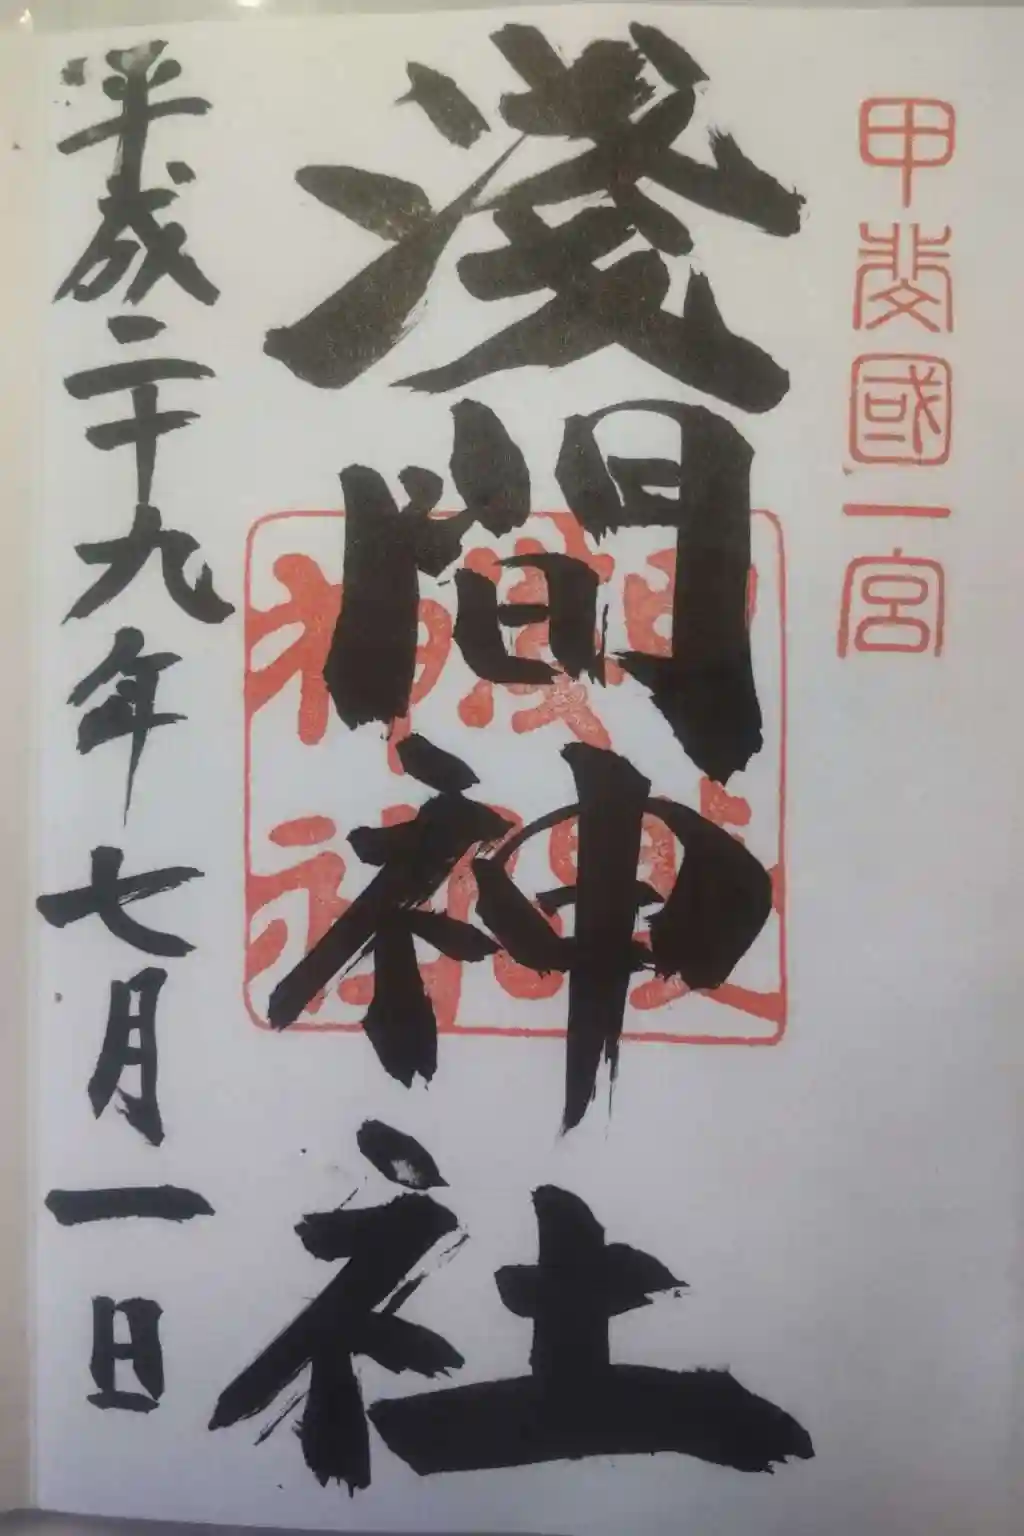 甲斐國一宮
淺間神社
平成二十九年七月一日